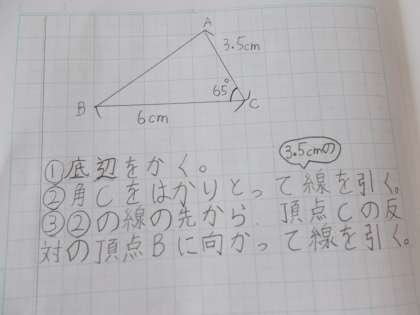 A
3.5cm
65°
B
C
6cm
3.5cmの
①底辺をかく。
②角Cをはかりとって線を引く。
③②の線の先から、頂点Cの反
対の頂点Bに向かって線を引く。